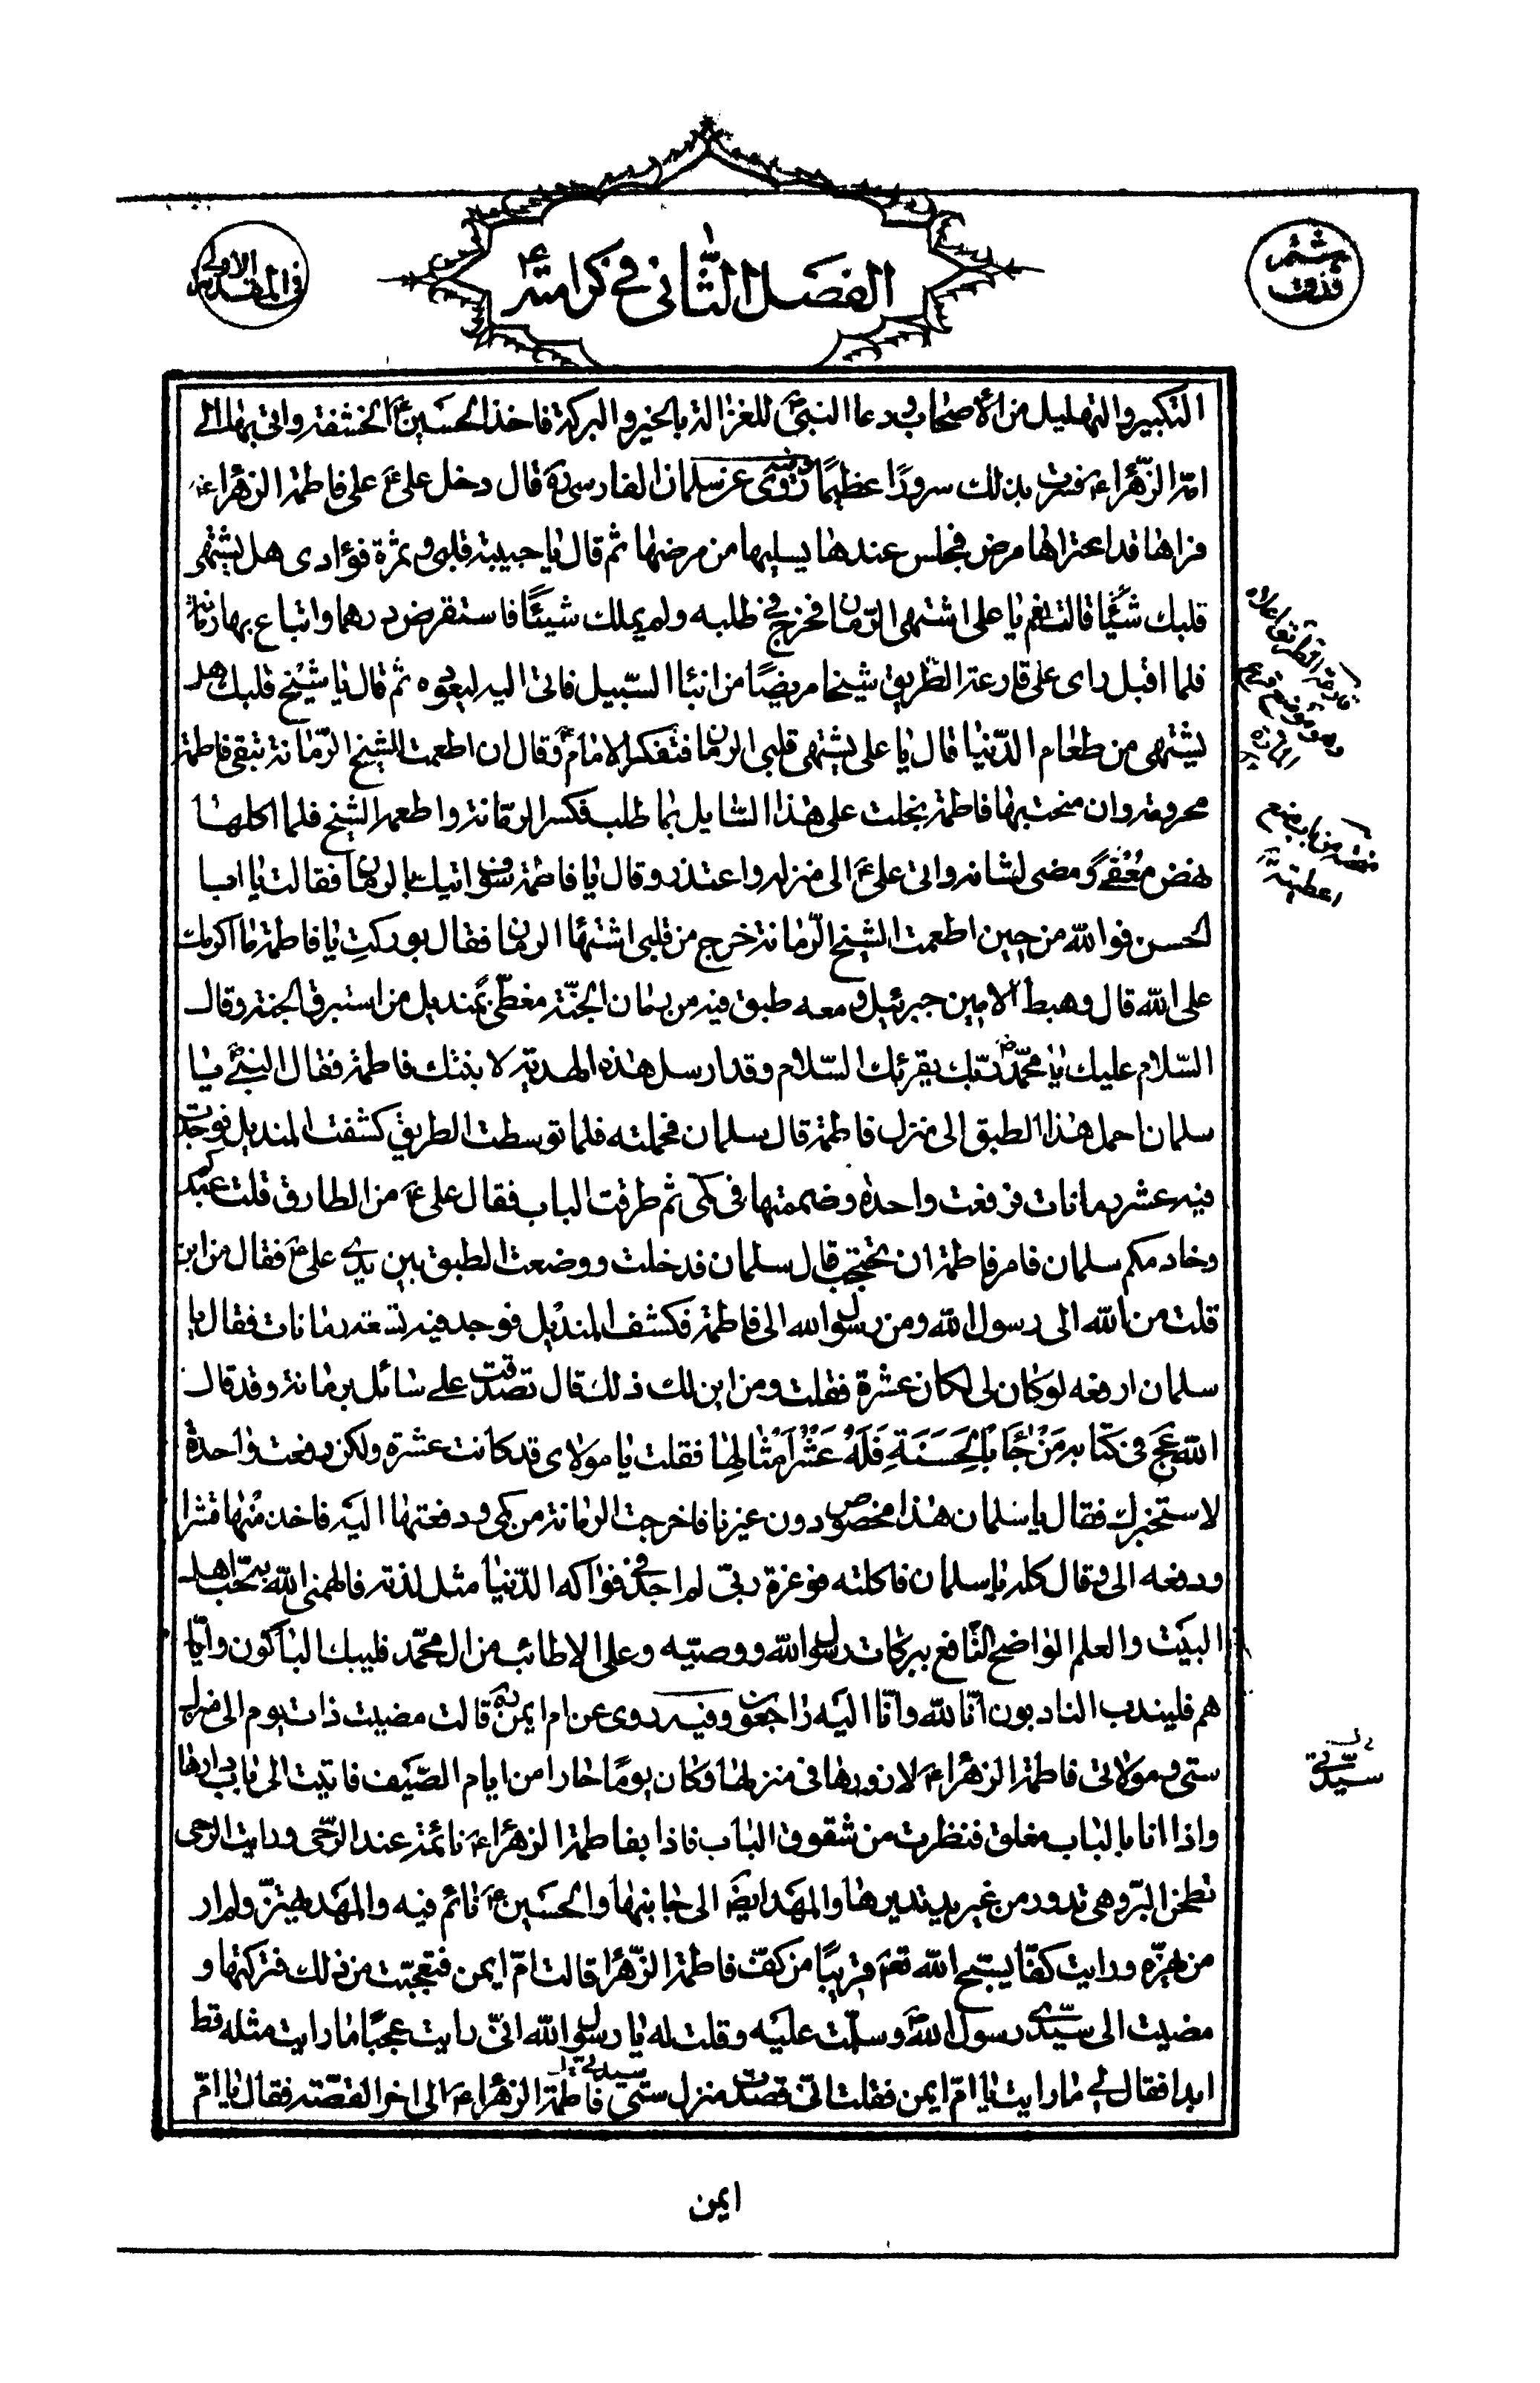 الفصل الثانى فى كرامته ع
فى المقدمة الاولى
التكبير والتهليل من الأصحاب ودعا النبىّ ص للغزالة بالخير والبركة فاخذ الحسين ع الخشفة واتى بها الى
امّه الزّهراء ع فسرت بذلك سرورًا عظيمًا وفيه روى عن سلمان الفارسى ره قال دخل على ع على فاطمة الزهراء ع
فراها قد اعتراها مرض فجلس عندها يسليها من مرضها ثم قال يا حبيبة قلبى وثمرة فؤادى هل يشتهى
قلبك شيئًا قالت نعم يا على اشتهى الرّمان فخرج فى طلبه ولم يملك شيئًا فاستقرض درهما وابتاع بها رمّانة
فلما اقبل راى على قارعة الطّريق شيخا مريضًا من ابناء السّبيل فاتى اليه ليعوده ثم قال يا شيخ قلبك هل
يشتهى من طعام الدّنيا قال يا على يشتهى قلبى الرمان فتفكر الامام ع وقال ان اطعمت الشيخ الرّمانة تبقى فاطمة
محرومة وان منحت بها فاطمة بخلت على هذا السّايل بما طلب فكسر الرمّانة واطعمه الشيخ فلما اكلها
نهض معفى ومضى لشانه واتى على ع الى منزله واعتذر وقال يا فاطمة سوف اتيك بالرمان فقالت يا ابا
الحسن فوالله من حين اطعمت الشيخ الرّمانة خرج من قلبى اشتهاء الرمان فقال بوركتِ يا فاطمة ما اكرمك
على الله قال وهبط الامين جبرئيل ومعه طبق فيه من رمان الجنّة مغطّىً بمنديل من استبرق الجنة وقال
السّلام عليك يا محمّد ص ربّك يقرئك السّلام وقد ارسل هذه الهدية لابنتك فاطمة فقال النبىّ ص يا
سلمان احمل هذا الطبق الى منزل فاطمة قال سلمان فحملته فلما توسطت الطريق كشفت المنديل فوجدت
فيه عشر رمانات فرفعت واحدة وضممتها فى كمّى ثم طرقت الباب فقال على ع من الطارق قلت عبدكم
وخادمكم سلمان فامر فاطمة ان تحتجب قال سلمان فدخلت ووضعت الطبق بين يدى على ع فقال من اين
قلت من الله الى رسول الله ومن رسول الله الى فاطمة فكشف المنديل فوجد فيه تسعة رمانات فقال يا
سلمان ارفعه لو كان لى لكان عشرة فقلت ومن اين لك ذلك قال تصدقت على سائل برمانة وقد قال
الله عج فى كتابه مَنْ جَاءَ بِالْحَسَنَةِ فَلَهُ عَشْرُ اَمْثَالِهَا فقلت يا مولاى قد كانت عشرة ولكن رفعت واحدة
لاستخبرك فقال يا سلمان هذا مخصوص دون غيرنا فاخرجت الرمانة من كمى ودفعتها اليه فاخذ منها قشرا
ودفعه الى وقال كله يا سلمان فاكلته فوعزة ربّى لم اجد فى فواكه الدّنيا مثل لذته فالهمنى الله به حب اهل
البيت والعلم الواضح النّافع ببركات رسول الله ووصيّه وعلى الاطائب من ال محمّد فليبك الباكون وايّا
هم فليندب النادبون انّا لله وانّا اليه راجعون وفيه روى عن ام ايمن ره قالت مضيت ذات يوم الى منزل
ستى ومولاتى فاطمة الزهراء ع لازورها فى منزلها وكان يومًا حارا من ايام الصّيف فاتيت الى باب دارها
واذا انا بالباب مغلق فنظرت من شقوق الباب فاذا بفاطمة الزهراء ع نائمة عند الرّحى ورايت الرحى
تطحن البرّ وهى تدور من غير يد تديرها والمهد ايضا الى جانبها والحسين ع نائم فيه والمهد يهتزّ ولم ار
من يهزّه ورايت كفّا يسبّح الله تعم قريبًا من كفّ فاطمة الزّهرا قالت امّ ايمن فتعجّبت من ذلك فتركتها و
مضيت الى سيّدى رسول الله ص وسلّمت عليه وقلت له يا رسول الله انّى رايت عجبًا ما رايت مثله قط
ابدا فقال لى ما رايت يا امّ ايمن فقلت انّى قصدت منزل ستى فاطمة الزهراء ع الى اخر القصّة فقال يا امّ
سيّدتى
ايمن